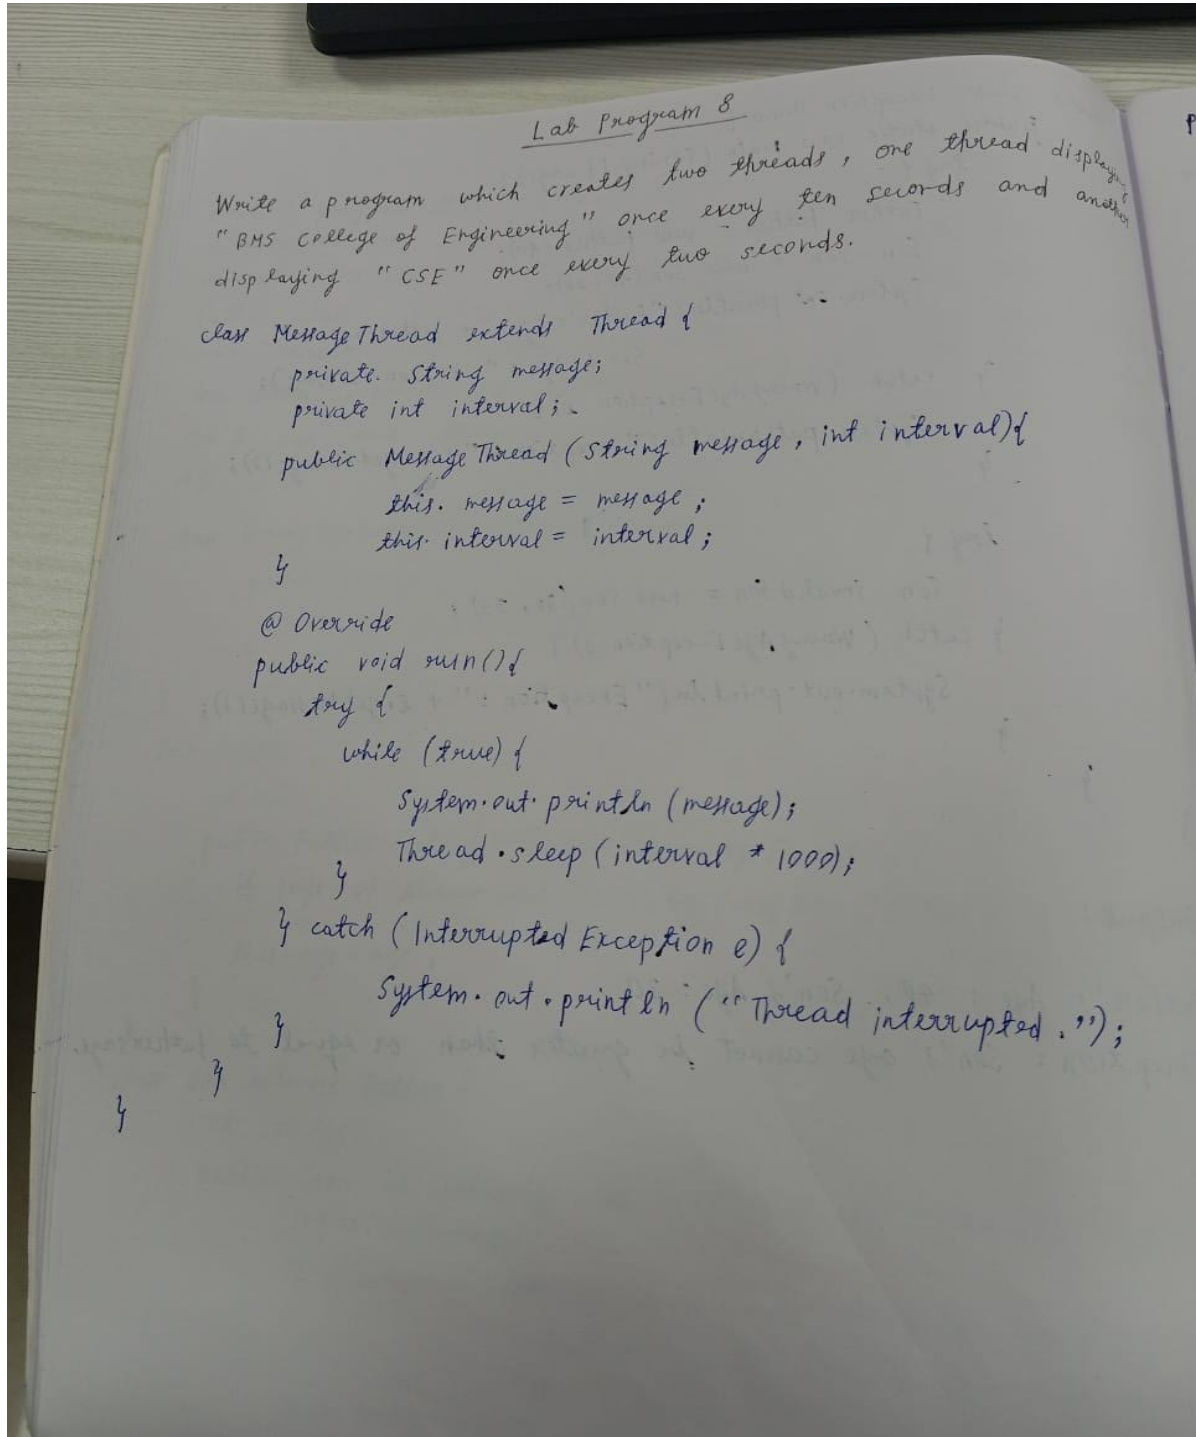 Lab Program 8
Write a program which creates two threads, one thread displaying
"BMS College of Engineering" once every ten seconds and another
displaying "CSE" once every two seconds.
class MessageThread extends Thread {
private String message;
private int interval;
public MessageThread (String message, int interval){
this. message = message ;
this. interval = interval ;
}
@ Override
public void run(){
try {
while (true) {
System.out.println (message);
Thread.sleep (interval * 1000);
}
} catch (Interrupted Exception e) {
System.out.println ("Thread interrupted.");
}
}
}